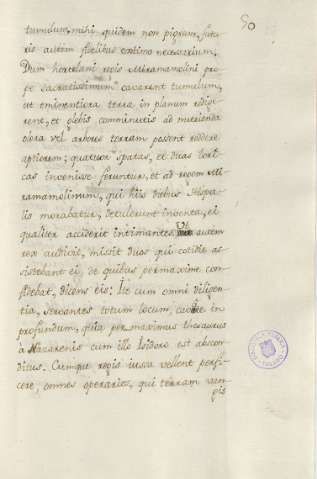 50
tumulum, mihi quidem non pigrum, futu-
ris autem fidelibus extimo necessarium.
Dum hortelani regis Miramamolini pro-
pe sacratissimum caverent tumulum,
ut eminentiora terræ in planum redige-
rent, et glebis comminutis ad nutrienda
olera vel arbores terram possent reddere
aptiorem; quatuor spatas, et duas lori-
cas invenisse feruntur, et ad regem Mi-
ramamolinum, qui hiis diebus Hispa-
lis morabatur, detulerunt inventa, et
qualiter acciderit intimantes. Ut autem
rex audivit, missit duos qui cotidie as-
sistebant ei, de quibus permaxime con-
fidebat, dicens eis; Ite cum omni diligen-
tia, servantes totum locum, in
profundum, quia permaximus thesaurus
a Nazarenis cum illo Isidoro est abscon-
ditus. Cumque regis iussa vellent perfi-
cere, omnes operarii, qui terram